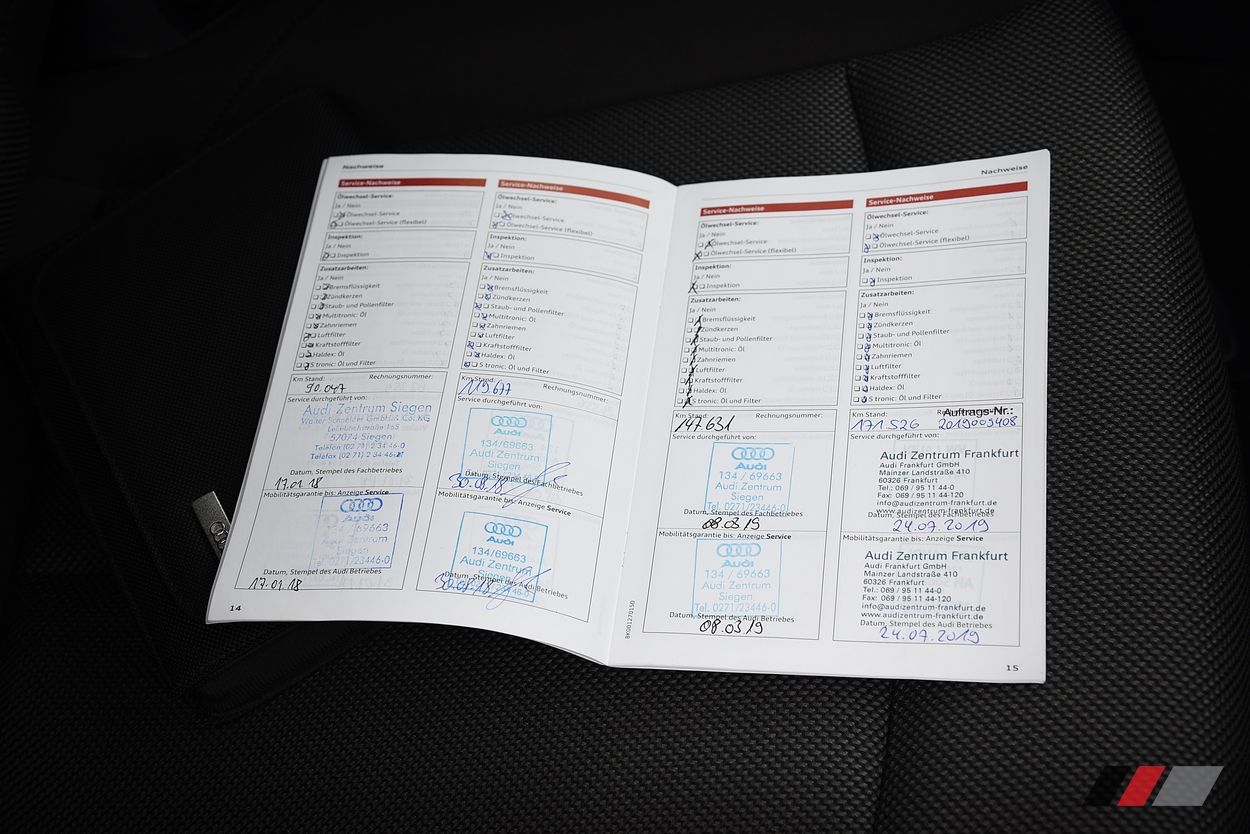 Nachweise
Service-Nachweise
Ölwechsel-Service:
Ja / Nein
Ölwechsel-Service
Ölwechsel-Service (flexibel)
Inspektion:
Ja / Nein
Inspektion
Zusatzarbeiten:
Ja / Nein
Bremsflüssigkeit
Zündkerzen
Staub- und Pollenfilter
Multitronic: Öl
Zahnriemen
Luftfilter
Kraftstofffilter
Haldex: Öl
S tronic: Öl und Filter
Km Stand: Rechnungsnummer:
90.047
Service durchgeführt von:
Audi Zentrum Siegen
57074 Siegen
Telefon (02 71) 2 34 46-0
Telefax (02 71) 2 34 46-
Datum, Stempel des Fachbetriebes
17.01.18
Mobilitätsgarantie bis: Anzeige Service
Audi
134 / 69663
Audi Zentrum
Siegen
Tel. 0271/23446-0
Datum, Stempel des Audi Betriebes
17.01.18
14
Service-Nachweise
Ölwechsel-Service:
Ja / Nein
Ölwechsel-Service
Ölwechsel-Service (flexibel)
Inspektion:
Ja / Nein
Inspektion
Zusatzarbeiten:
Ja / Nein
Bremsflüssigkeit
Zündkerzen
Staub- und Pollenfilter
Multitronic: Öl
Zahnriemen
Luftfilter
Kraftstofffilter
Haldex: Öl
S tronic: Öl und Filter
Km Stand: Rechnungsnummer:
119677
Service durchgeführt von:
Audi
134/69663
Audi Zentrum
Siegen
Datum, Stempel des Fachbetriebes
30.08.18
Mobilitätsgarantie bis: Anzeige Service
Audi
134/69663
Audi Zentrum
Siegen
Datum, Stempel des Audi Betriebes
30.08.18
Nachweise
Service-Nachweise
Ölwechsel-Service:
Ja / Nein
Ölwechsel-Service
Ölwechsel-Service (flexibel)
Inspektion:
Ja / Nein
Inspektion
Zusatzarbeiten:
Ja / Nein
Bremsflüssigkeit
Zündkerzen
Staub- und Pollenfilter
Multitronic: Öl
Zahnriemen
Luftfilter
Kraftstofffilter
Haldex: Öl
S tronic: Öl und Filter
Km Stand: Rechnungsnummer:
147.631
Service durchgeführt von:
Audi
134 / 69663
Audi Zentrum
Siegen
Tel. 0271/23446-0
Datum, Stempel des Fachbetriebes
08.03.19
Mobilitätsgarantie bis: Anzeige Service
Audi
134 / 69663
Audi Zentrum
Siegen
Tel. 0271/23446-0
Datum, Stempel des Audi Betriebes
08.03.19
8K0012701SD
Service-Nachweise
Ölwechsel-Service:
Ja / Nein
Ölwechsel-Service
Ölwechsel-Service (flexibel)
Inspektion:
Ja / Nein
Inspektion
Zusatzarbeiten:
Ja / Nein
Bremsflüssigkeit
Zündkerzen
Staub- und Pollenfilter
Multitronic: Öl
Zahnriemen
Luftfilter
Kraftstofffilter
Haldex: Öl
S tronic: Öl und Filter
Km Stand: Auftrags-Nr.:
171526 2019003408
Service durchgeführt von:
Audi Zentrum Frankfurt
Audi Frankfurt GmbH
Mainzer Landstraße 410
60326 Frankfurt
Tel.: 069 / 95 11 44-0
Fax: 069 / 95 11 44-120
info@audizentrum-frankfurt.de
www.audizentrum-frankfurt.de
Datum, Stempel des Fachbetriebes
24.07.2019
Mobilitätsgarantie bis: Anzeige Service
Audi Zentrum Frankfurt
Audi Frankfurt GmbH
Mainzer Landstraße 410
60326 Frankfurt
Tel.: 069 / 95 11 44-0
Fax: 069 / 95 11 44-120
info@audizentrum-frankfurt.de
www.audizentrum-frankfurt.de
Datum, Stempel des Audi Betriebes
24.07.2019
15